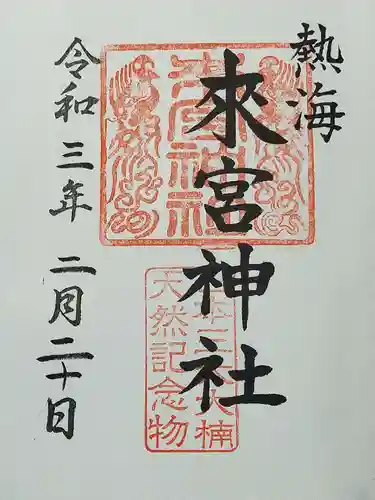 熱海
來宮神社
令和三年 二月二十日
來宮神社
大楠
天然記念物